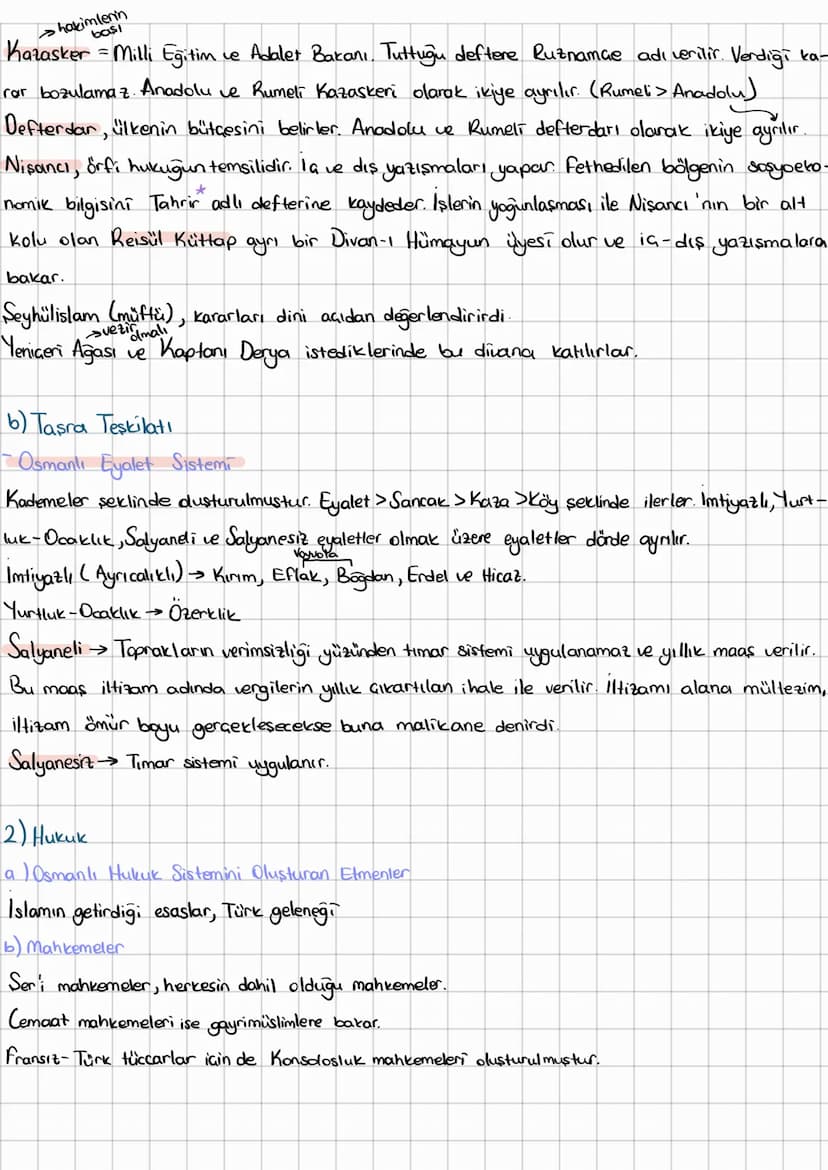 → hakimlerin
başı
Kazasker = Milli Eğitim ve Adalet Bakanı. Tuttuğu deftere Ruznamçe adı verilir. Verdiği ka-
rar bozulamaz. Anadolu ve Rumeli Kazaskeri olarak ikiye ayrılır. (Rumeli > Anadolu)
Defterdar, ülkenin bütçesini belirler. Anadolu ve Rumeli defterdarı olarak ikiye ayrılır.
Nişancı, örfi hukuğun temsilidir. İç ve dış yazışmaları yapar. Fethedilen bölgenin sosyoeko-
nomik bilgisini Tahrir* adlı defterine kaydeder. İşlerin yoğunlaşması ile Nişancı'nın bir alt
kolu olan Reisül Küttap ayrı bir Divan-ı Hümayun üyesi olur ve iç-dış yazışmalara
bakar.
Şeyhülislam (müftü), kararları dini açıdan değerlendirirdi.
→ vezir olmalı
Yeniçeri Ağası ve Kaptanı Derya istediklerinde bu divana katılırlar.
b) Taşra Teşkilatı
- Osmanlı Eyalet Sistemi
Kademeler şeklinde oluşturulmuştur. Eyalet > Sancak > Kaza > Köy şeklinde ilerler. İmtiyazlı, Yurt-
luk-Ocaklık, Salyaneli ve Salyanesiz eyaletler olmak üzere eyaletler dörde ayrılır.
Voyvoda
İmtiyazlı (Ayrıcalıklı) → Kırım, Eflak, Boğdan, Erdel ve Hicaz.
Yurtluk-Ocaklık → Özerklik
Salyaneli → Toprakların verimsizliği yüzünden tımar sistemi uygulanamaz ve yıllık maaş verilir.
Bu maaş iltizam adında vergilerin yıllık çıkartılan ihale ile verilir. İltizamı alana mültezim,
iltizam ömür boyu gerçekleşecekse buna malikane denirdi.
Salyanesiz → Tımar sistemi uygulanır.
2) Hukuk
a) Osmanlı Hukuk Sistemini Oluşturan Etmenler
İslamın getirdiği esaslar, Türk geleneği
b) Mahkemeler
Şer'i mahkemeler, herkesin dahil olduğu mahkemeler.
Cemaat mahkemeleri ise gayrimüslimlere bakar.
Fransız-Türk tüccarlar için de Konsolosluk mahkemeleri oluşturulmuştur.